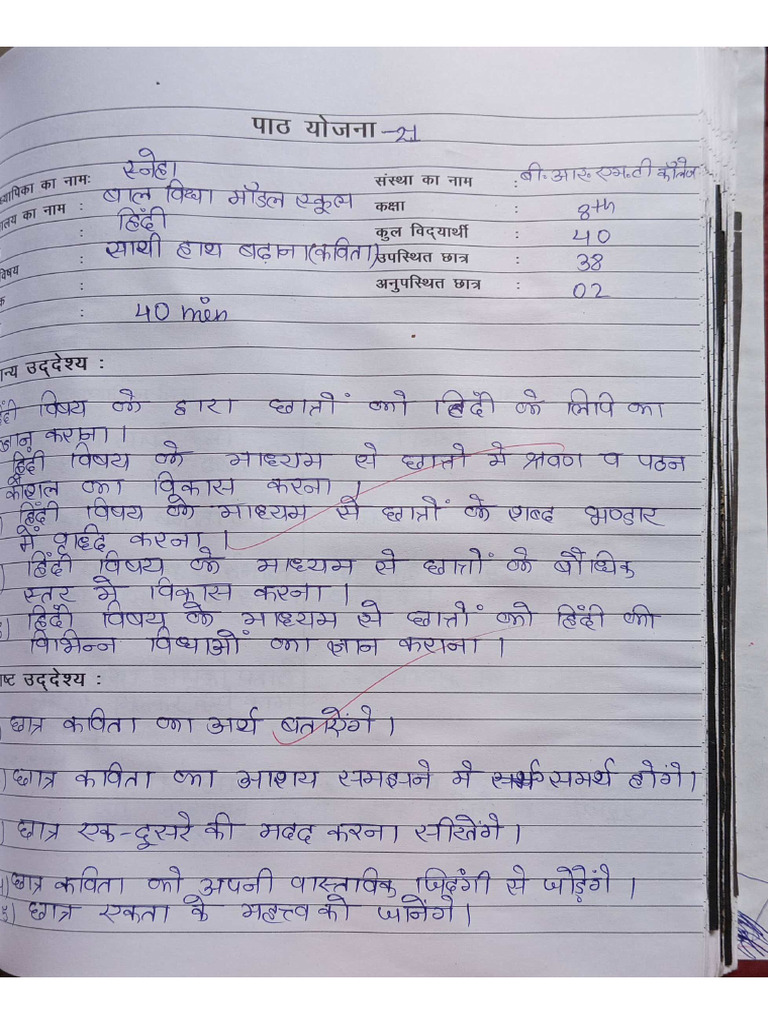 पाठ योजना -21
ध्यापिका का नामः स्नेहा
संस्था का नाम : बी. आर. एम. टी कॉलेज
ालय का नाम : बाल विधा मॉडल स्कूल
कक्षा : 8th
: हिंदी
कुल विद्‌यार्थी : 40
विषय : साथी हाथ बढ़ाना (कविता)
उपस्थित छात्र : 38
अनुपस्थित छात्र : 02
: 40 min
ान्य उद्‌देश्य :
विषय के द्वारा छात्रों को हिंदी के लिपि का
ज्ञान कराना।
हिंदी विषय के माध्यम से छात्रो मे श्रवण व पठन
कौशल का विकास करना।
) हिंदी विषय के माध्यम से छात्रों के शब्द भण्डार
में वृद्धि करना।
) हिंदी विषय के माध्यम से छात्रों के बौधिक
स्तर मे विकास करना।
5) हिंदी विषय के माध्यम से छात्रों को हिंदी की
विभिन्न विधाओं का ज्ञान कराना।
िष्ट उद्‌देश्य :
) छात्र कविता का अर्थ बताऐंगे।
) छात्र कविता का आशय समझने मे समर्थ होंगे।
) छात्र एक-दुसरे की मदद करना सीखेंगे।
4) छात्र कविता को अपनी वास्तविक जिंदगी से जोड़ेंगे।
5) छात्र एकता के महत्त्व को जानेंगे।